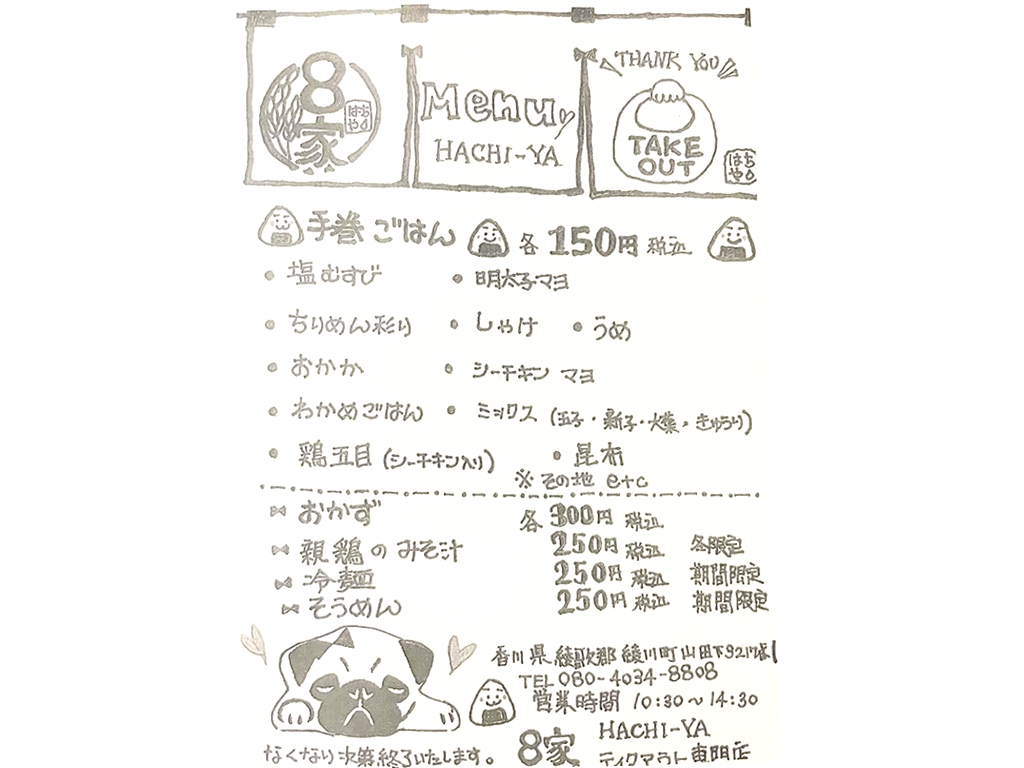 8家
はちや
Menu
HACHI-YA
THANK YOU
TAKE
OUT
はちや
手巻ごはん 各150円 税込
• 塩むすび • 明太子マヨ
• ちりめん彩り • しゃけ • うめ
• おかか • シーチキン マヨ
• わかめごはん • ミックス (玉子・新子・大葉・きゅうり)
• 鶏五目 (シーチキン入り) • 昆布
※ その他 etc
おかず 各300円 税込
親鶏のみそ汁 250円 税込 冬限定
冷麺 250円 税込 期間限定
そうめん 250円 税込 期間限定
香川県綾歌郡綾川町山田下
TEL 080-4034-8808
営業時間 10:30〜14:30
なくなり次第終了いたします。
8家 HACHI-YA
テイクアウト専門店